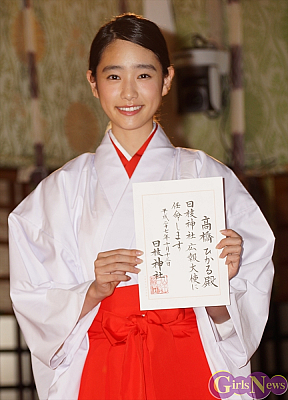 高橋ひかる殿
日枝神社広報大使に
任命します
平成二十七年十月十一日
日枝神社
GirlsNews